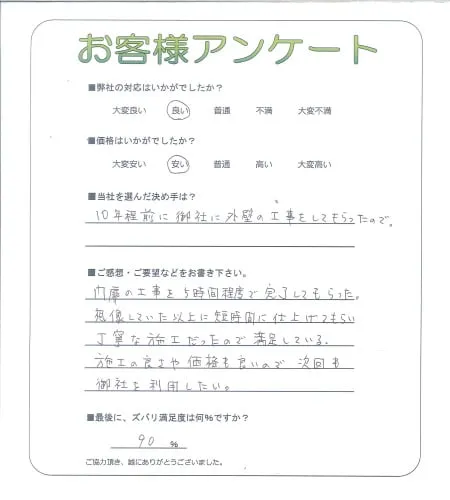 お客様アンケート
■弊社の対応はいかがでしたか？
大変良い 良い 普通 不満 大変不満
■価格はいかがでしたか？
大変安い 安い 普通 高い 大変高い
■当社を選んだ決め手は？
10年程前に御社に外壁の工事をしてもらったので。
■ご感想・ご要望などをお書き下さい。
内扉の工事を5時間程度で完了してもらった。
想像していた以上に短時間に仕上げてもらい
丁寧な施工だったので満足している。
施工の良さや価格も良いので次回も
御社を利用したい。
■最後に、ズバリ満足度は何％ですか？
90 %
ご協力頂き、誠にありがとうございました。